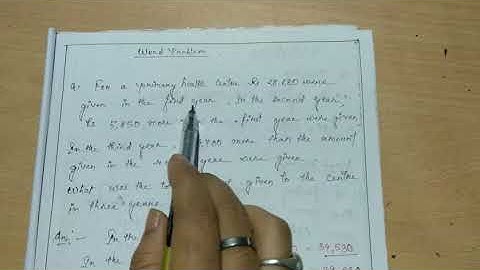 Word Problem
Q. For a primary health Centre Rs 28,680 were
given in the first year. In the second year,
Rs 5,850 more the first year were given
In the third year 700 more than the amount
given in the year were given.
What was the given to the centre
in three years.
Ans:- In the = 34,530
In the